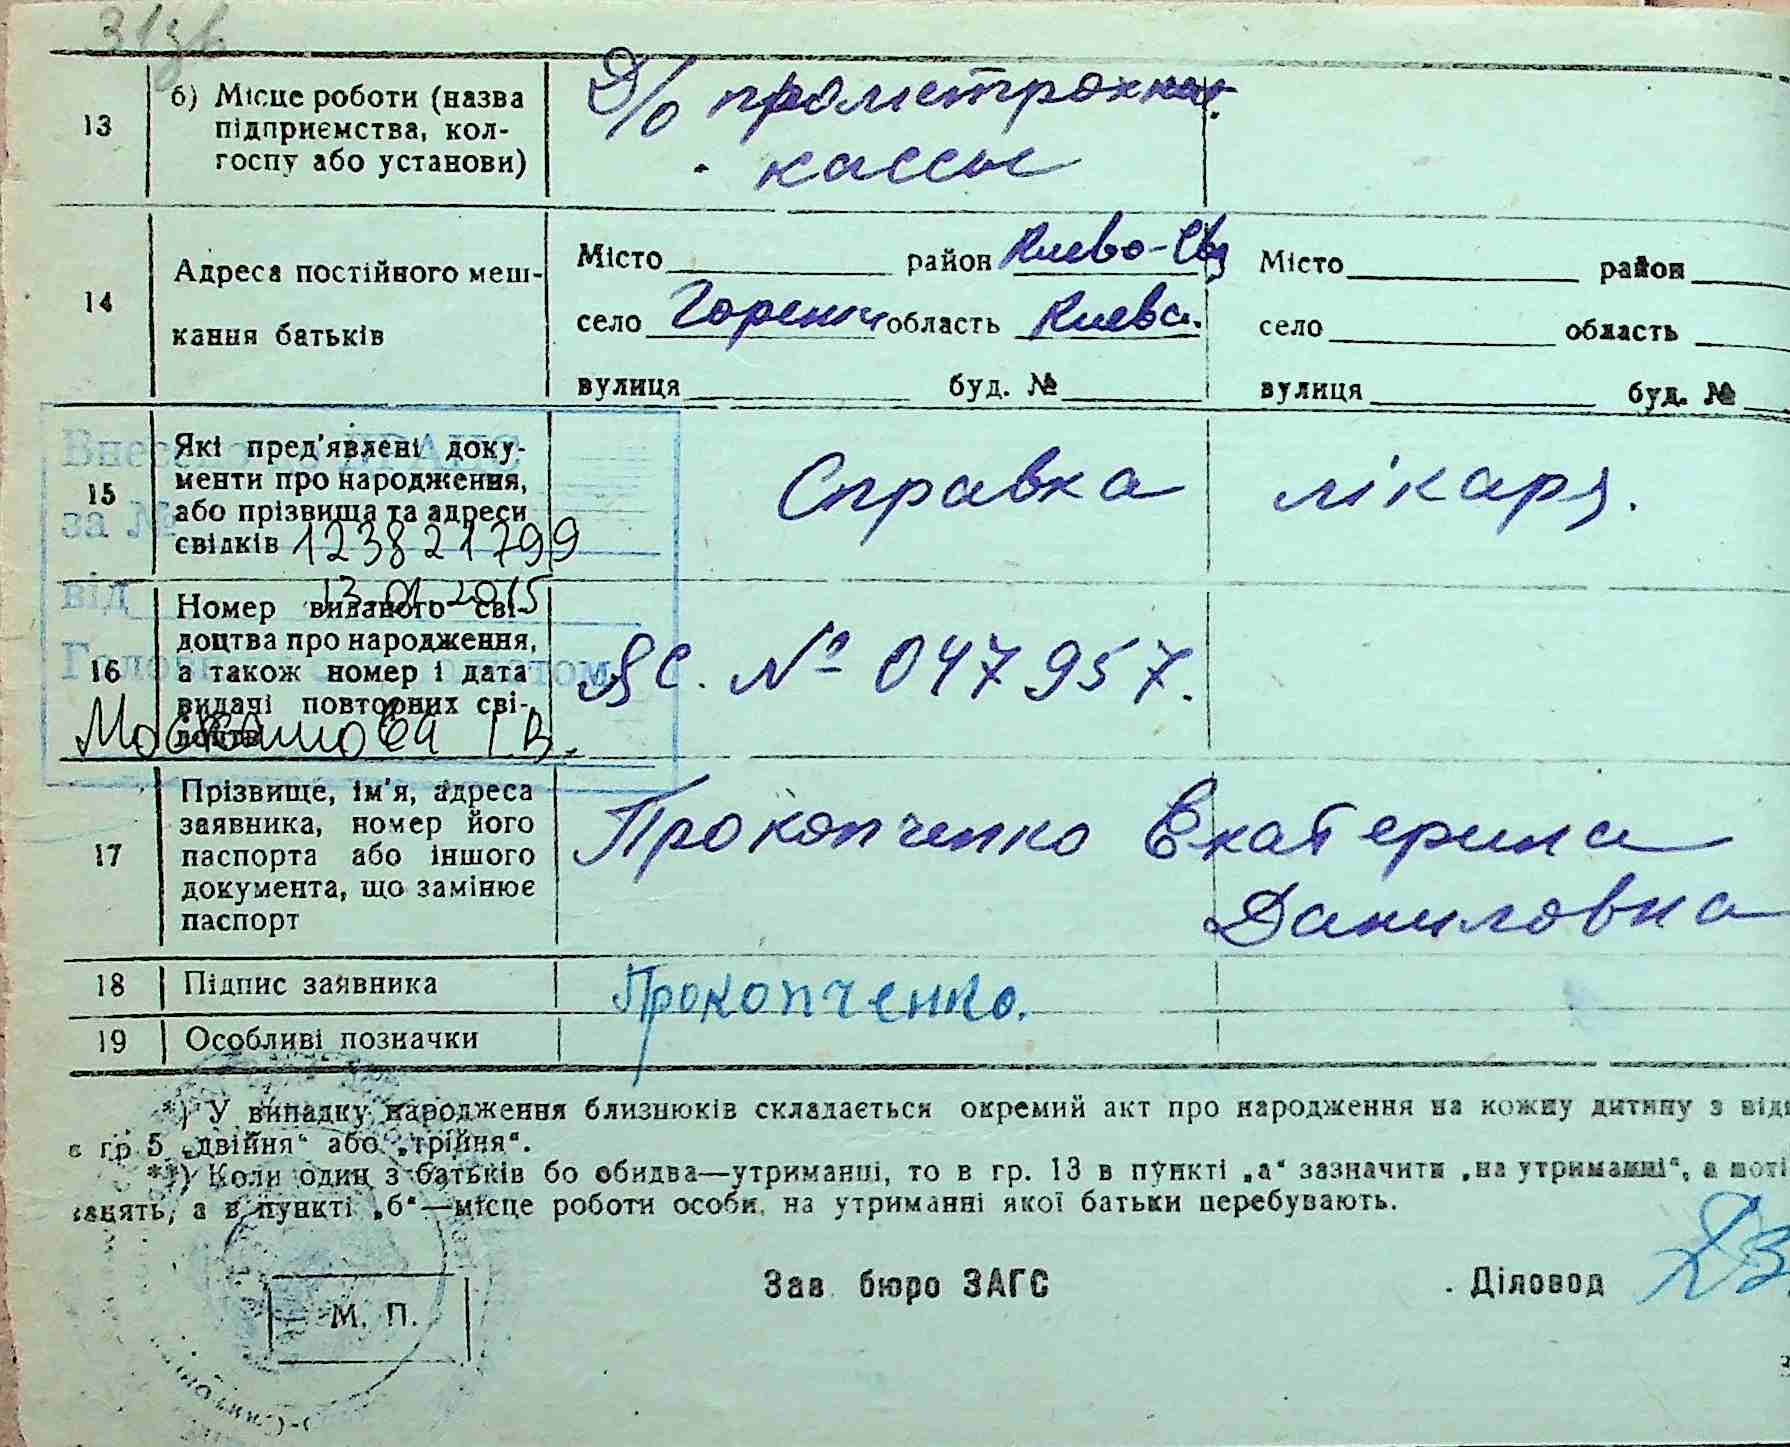 13
б) Місце роботи (назва
підприємства, кол-
госпу або установи)
Д/о промстрахкас.
кассы
14
Адреса постійного меш-
кання батьків
Місто район Киево-Св
село Горенич область Киевс.
вулиця буд. №
Місто район
село область
вулиця буд. №
15
Які пред'явлені доку-
менти про народження,
або прізвища та адреси
свідків
Справка лікаря.
за №
123821799
від
13.01.2015
16
Номер виданого сві-
доцтва про народження,
а також номер і дата
видачі повторних сві-
доцтв
ЯС. № 047957.
17
Прізвище, ім'я, адреса
заявника, номер його
паспорта або іншого
документа, що замінює
паспорт
Прокопченко Екатерина
Даниловна
18 Підпис заявника
Прокопченко.
19 Особливі позначки
*) У випадку народження близнюків складається окремий акт про народження на кожну дитину з
в гр 5 „двійня“ або „трійня“.
**) Коли один з батьків бо обидва—утриманці, то в гр. 13 в пункті „а“ зазначити „на утриманні“, а
занять, а в пункті „б“—місце роботи особи, на утриманні якої батьки перебувають.
Зав. бюро ЗАГС
Діловод
М. П.